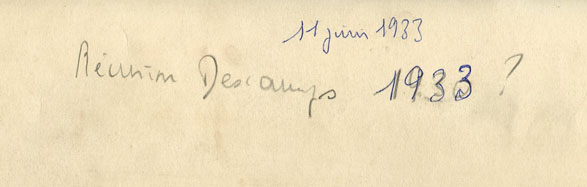 11 juin 1933
Réunion Descamps 1933 ?